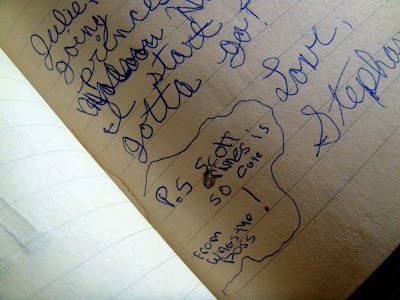 Julie,
going
Prince
I start
Gotta Go!
Love,
Stephan
P.S Scott
Grimes is
so cute!
From
Whos the
Boss